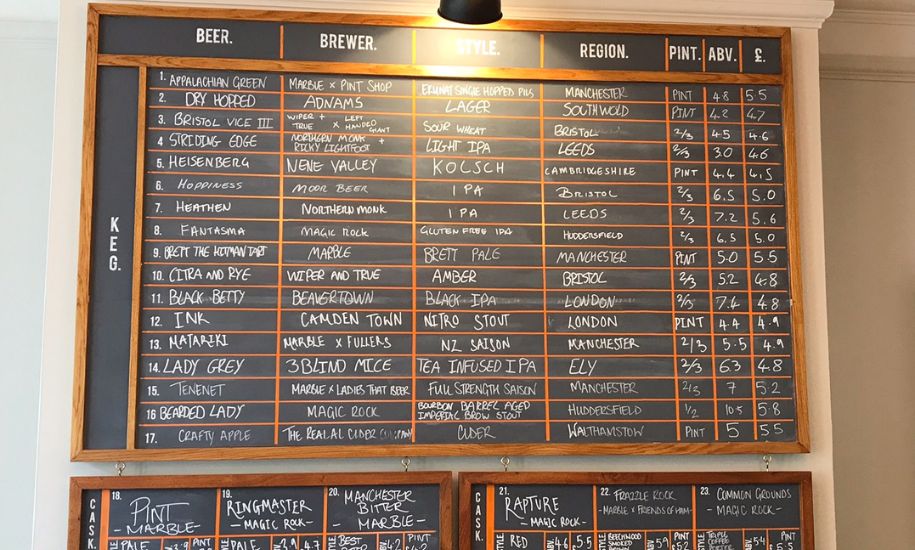 BEER. BREWER. STYLE. REGION. PINT. ABV. £
KEG.
1. APPALACHIAN GREEN MARBLE × PINT SHOP EKUNAI SINGLE HOPPED PILS MANCHESTER PINT 4.8 5.5
2. DRY HOPPED ADNAMS LAGER SOUTHWOLD PINT 4.2 4.7
3. BRISTOL VICE III WIPER + TRUE × LEFT HANDED GIANT SOUR WHEAT BRISTOL 2/3 4.5 4.6
4 STRIDING EDGE NORTHERN MONK + RICKY LIGHTFOOT LIGHT IPA LEEDS 2/3 3.0 4.6
5. HEISENBERG NENE VALLEY KOLSCH CAMBRIDGESHIRE PINT 4.4 4.5
6. HOPPINESS MOOR BEER IPA BRISTOL 2/3 6.5 5.0
7. HEATHEN NORTHERN MONK IPA LEEDS 2/3 7.2 5.6
8. FANTASMA MAGIC ROCK GLUTEN FREE IPA HUDDERSFIELD 2/3 6.5 5.0
9. BRETT THE HITMAN TART MARBLE BRETT PALE MANCHESTER PINT 5.0 5.5
10. CITRA AND RYE WIPER AND TRUE AMBER BRISTOL 2/3 5.2 4.8
11. BLACK BETTY BEAVERTOWN BLACK IPA LONDON 2/3 7.4 4.8
12. INK CAMDEN TOWN NITRO STOUT LONDON PINT 4.4 4.9
13. MATARIKI MARBLE × FULLERS NZ SAISON MANCHESTER 2/3 5.5 4.9
14. LADY GREY 3 BLIND MICE TEA INFUSED IPA ELY 2/3 6.3 4.8
15. TENENET MARBLE × LADIES THAT BEER FULL STRENGTH SAISON MANCHESTER 2/3 7 5.2
16 BEARDED LADY MAGIC ROCK BOURBON BARREL AGED IMPERIAL BROW STOUT HUDDERSFIELD 1/2 10.5 5.8
17. CRAFTY APPLE THE REAL AL CIDER COMPANY CIDER WALTHAMSTOW PINT 5 5.5
CASK.
18. PINT
- MARBLE -
PALE 3.9 PINT
19. RINGMASTER
- MAGIC ROCK -
PALE 3.9 4.7
20. MANCHESTER
BITTER
- MARBLE -
BEST 4.2 PINT
CASK.
21. RAPTURE
- MAGIC ROCK -
STYLE RED 4.6 5.5
22. FRAZZLE ROCK
- MARBLE × FRIENDS OF HAM -
STYLE BEECHWOOD SMOKED 5.9 PINT 5.2
23. COMMON GROUNDS
- MAGIC ROCK -
TRIPLE COFFEE 5.4 PINT